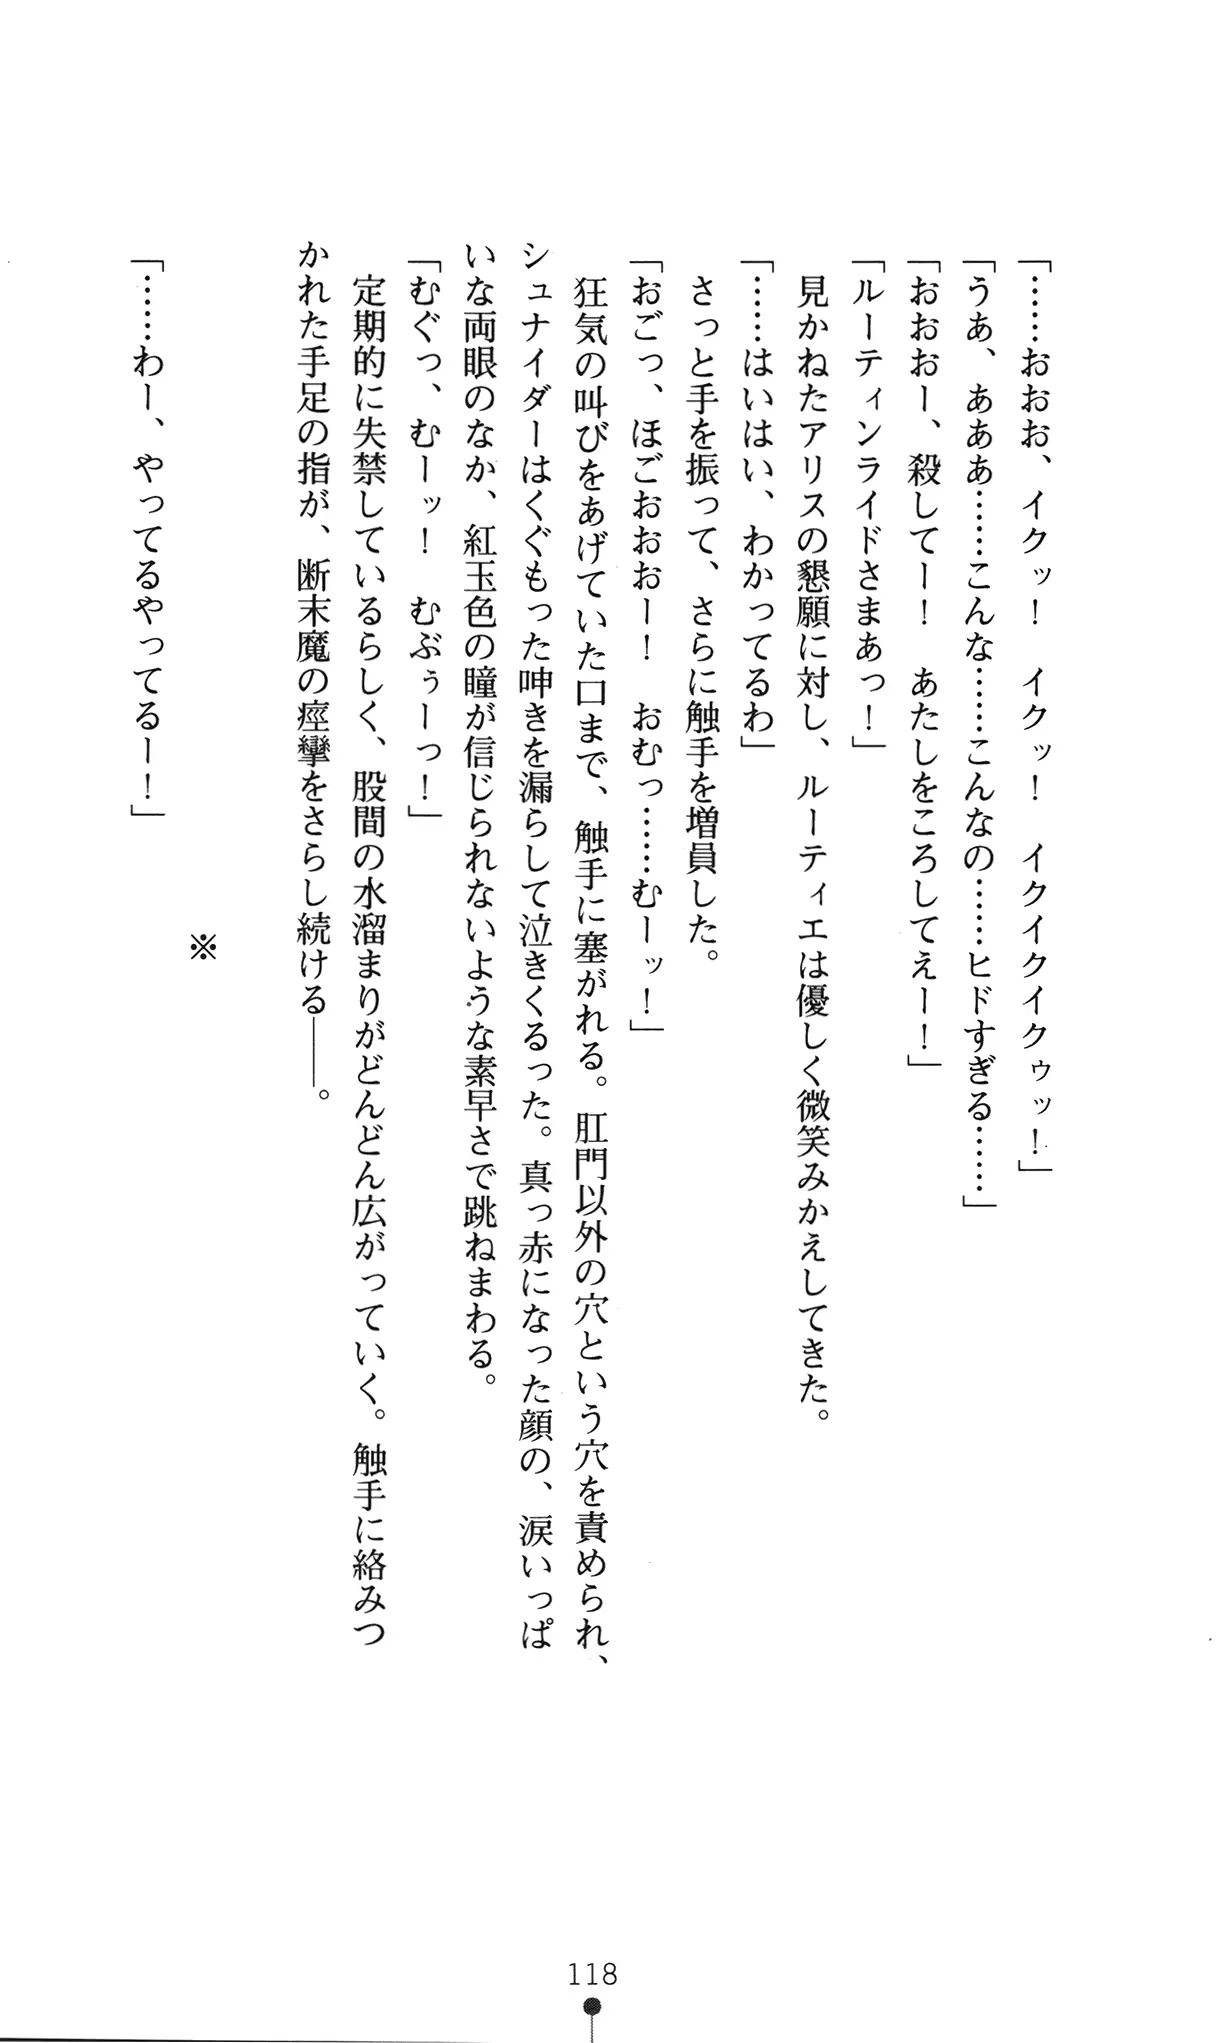 「……おおお、イクッ！　イクッ！　イクイクイクゥッ！」
「うあ、あああ……こんな……こんなの……ヒドすぎる……」
「おおおー、殺してー！　あたしをころしてえー！」
「ルーティンライドさまあっ！」
見かねたアリスの懇願に対し、ルーティエは優しく微笑みかえしてきた。
「……はいはい、わかってるわ」
さっと手を振って、さらに触手を増員した。
「おごっ、ほごおおおー！　おむっ……むーッ！」
狂気の叫びをあげていた口まで、触手に塞がれる。肛門以外の穴という穴を責められ、
シュナイダーはくぐもった呻きを漏らして泣きくるった。真っ赤になった顔の、涙いっぱ
いな両眼のなか、紅玉色の瞳が信じられないような素早さで跳ねまわる。
「むぐっ、むーッ！　むぶぅーっ！」
定期的に失禁しているらしく、股間の水溜まりがどんどん広がっていく。触手に絡みつ
かれた手足の指が、断末魔の痙攣をさらし続ける――。
※
「……わー、やってるやってるー！」
118